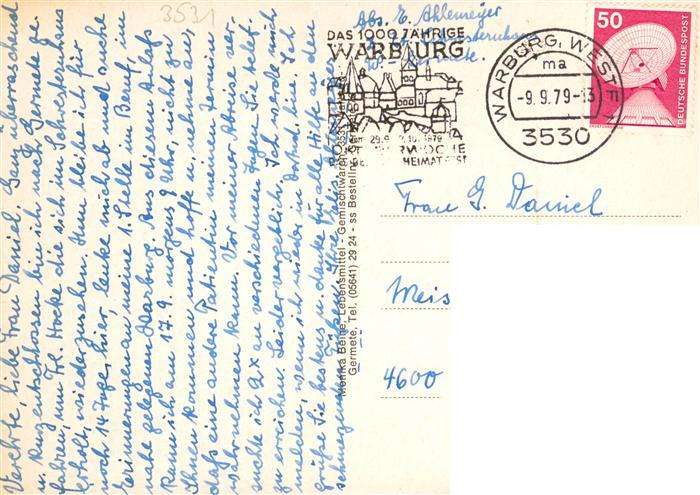 3531
Abs. E. Ahlemeyer
DAS 1000 JÄHRIGE
WARBURG
WARBURG, WESTF
ma
-9.9.79-13
3530
50
DEUTSCHE BUNDESPOST
Frau G. Daniel
Meis
4600
Verehrte, liebe Frau Daniel, Ganz überraschend
u. kurzentschlossen bin ich nach Germete ge-
fahren, um Frl. Hocke die sich Schulter
erholt, wiederzusehen. Nun bleibe ich für
noch 14 Tage hier, lenke mich ab und frische
Erinnerungen an meine 1. Stelle, Beruf, im
nahe gelegenen Warburg. Aus diesem Anlass
kann ich am 17.9. morgens 9 Uhr nicht zu
Ihnen kommen und hoffe u. wünsche es,
dass eine andere Patientin meinen Termin
wahrnehmen kann. Vor meiner Abreise ver-
suchte ich 9x an verschiedenen Tagen Sie
zu erreichen. Leider vergeblich. Ich
melden, wenn ich wieder in Dortmd. bin. Ich
grüße Sie bestens u. danke für alle Hilfe in den
schmerzenden Rücken. Ihre
Monika Beine, Lebensmittel - Gemischtwaren
Germete, Tel. (05641) 29 24 - ss Bestell